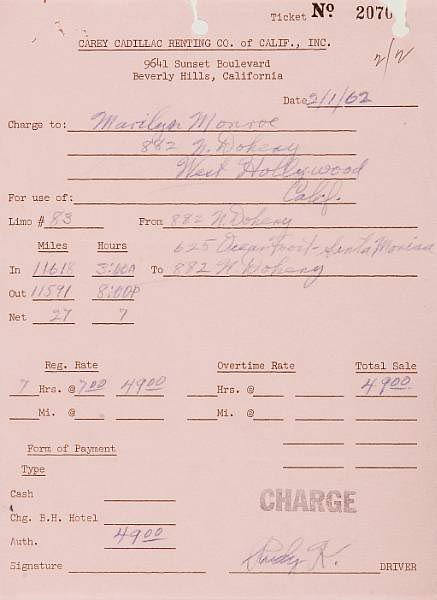 Ticket No 2070
CAREY CADILLAC RENTING CO. of CALIF., INC.
9641 Sunset Boulevard
Beverly Hills, California
2/2
Date 2/1/62
Charge to: Marilyn Monroe
882 N. Doheny
West Hollywood
For use of: Calif.
Limo # 83 From 882 N. Doheny
625 Ocean Front - Santa Monica
Miles Hours
In 11618 3:00A To 882 N. Doheny
Out 11591 8:00P
Net 27 7
Reg. Rate Overtime Rate Total Sale
7 Hrs. @ 7.00 49.00 Hrs. @ 49.00
Mi. @ Mi. @
Form of Payment
Type
Cash
CHARGE
Chg. B.H. Hotel
Auth. 49.00
Signature Rudy K. DRIVER